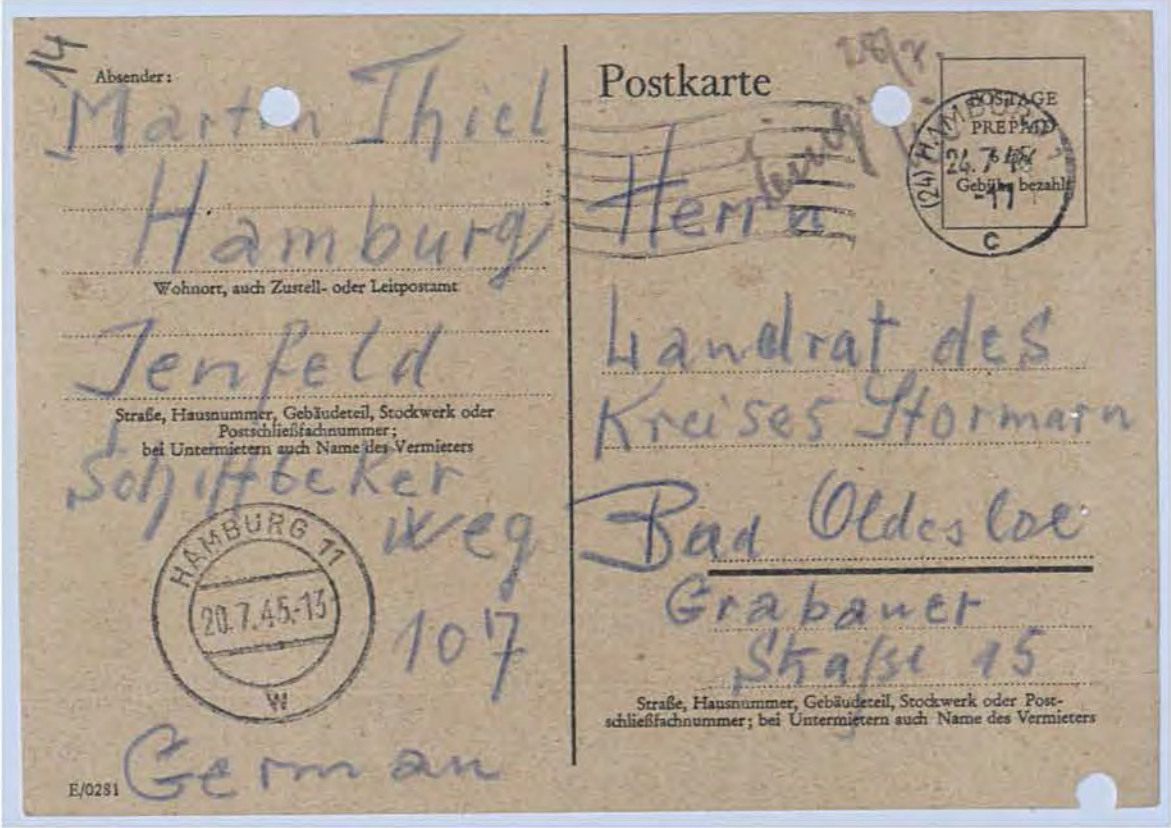 14
Absender:
Martin Thiel
Hamburg
Wohnort, auch Zustell- oder Leitpostamt
Jenfeld
Straße, Hausnummer, Gebäudeteil, Stockwerk oder
Postschließfachnummer;
bei Untermietern auch Name des Vermieters
Schiffbeker
Weg
107
HAMBURG 11
20.7.45.-13
W
German
E/0281
Postkarte
POSTAGE
PREPAID
Gebühr bezahlt
(24) HAMBURG
-11
C
Herrn
Landrat des
Kreises Stormarn
Bad Oldesloe
Grabauer
Straße 15
Straße, Hausnummer, Gebäudeteil, Stockwerk oder Post-
schließfachnummer; bei Untermietern auch Name des Vermieters